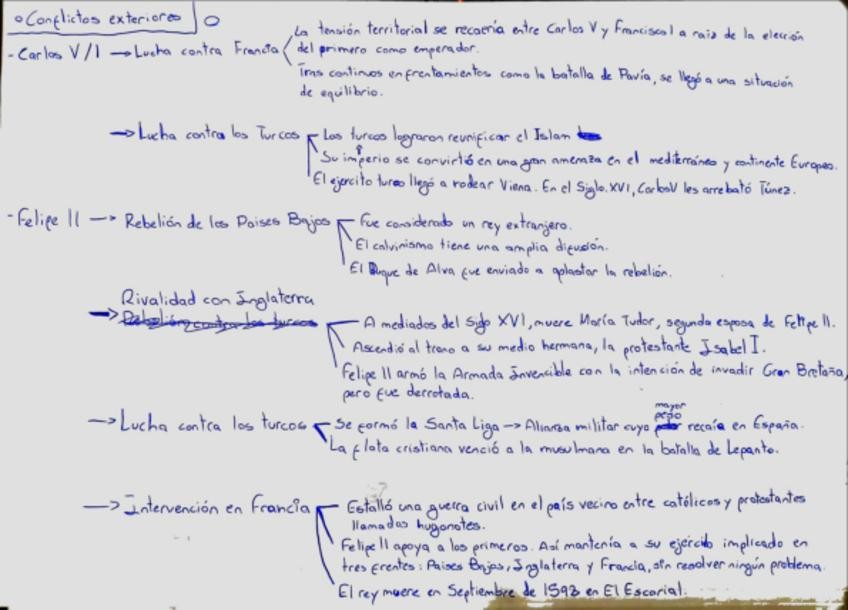 o Conflictos exteriores
- Carlos V/I → Lucha contra Francia
La tensión territorial se recaería entre Carlos V y Francisco I a raiz de la elección
del primero como emperador.
Tras continuos enfrentamientos como la batalla de Pavía, se llegó a una situación
de equilibrio.
→ Lucha contra los Turcos
Los turcos lograron reunificar el Islan
Su imperio se convirtió en una gran amenaza en el mediterráneo y continente Europeo.
El ejercito turco llegó a rodear Viena. En el Siglo XVI, Carlos V les arrebató Túnez.
- Felipe II → Rebelión de los Paises Bajos
Fue considerado un rey extranjero.
El calvinismo tiene una amplia difusión.
El Duque de Alva fue enviado a aplastar la rebelión.
→ Rivalidad con Inglaterra
Rebelión contra los turcos
A mediados del Siglo XVI, muere María Tudor, segunda esposa de Felipe II.
Ascendió al trono a su medio hermana, la protestante Isabel I.
Felipe II armó la Armada Invencible con la intención de invadir Gran Bretaña,
pero fue derrotada.
→ Lucha contra los turcos
mayor
peso
Se formó la Santa Liga → Alianza militar cuyo recaía en España.
La flota cristiana venció a la musulmana en la batalla de Lepanto.
→ Intervención en Francia
Estalló una guerra civil en el país vecino entre católicos y protestantes
llamados hugonotes.
Felipe II apoya a los primeros. Así mantenía a su ejército implicado en
tres frentes: Paises Bajos, Inglaterra y Francia, sin resolver ningún problema.
El rey muere en Septiembre de 1598 en El Escorial.